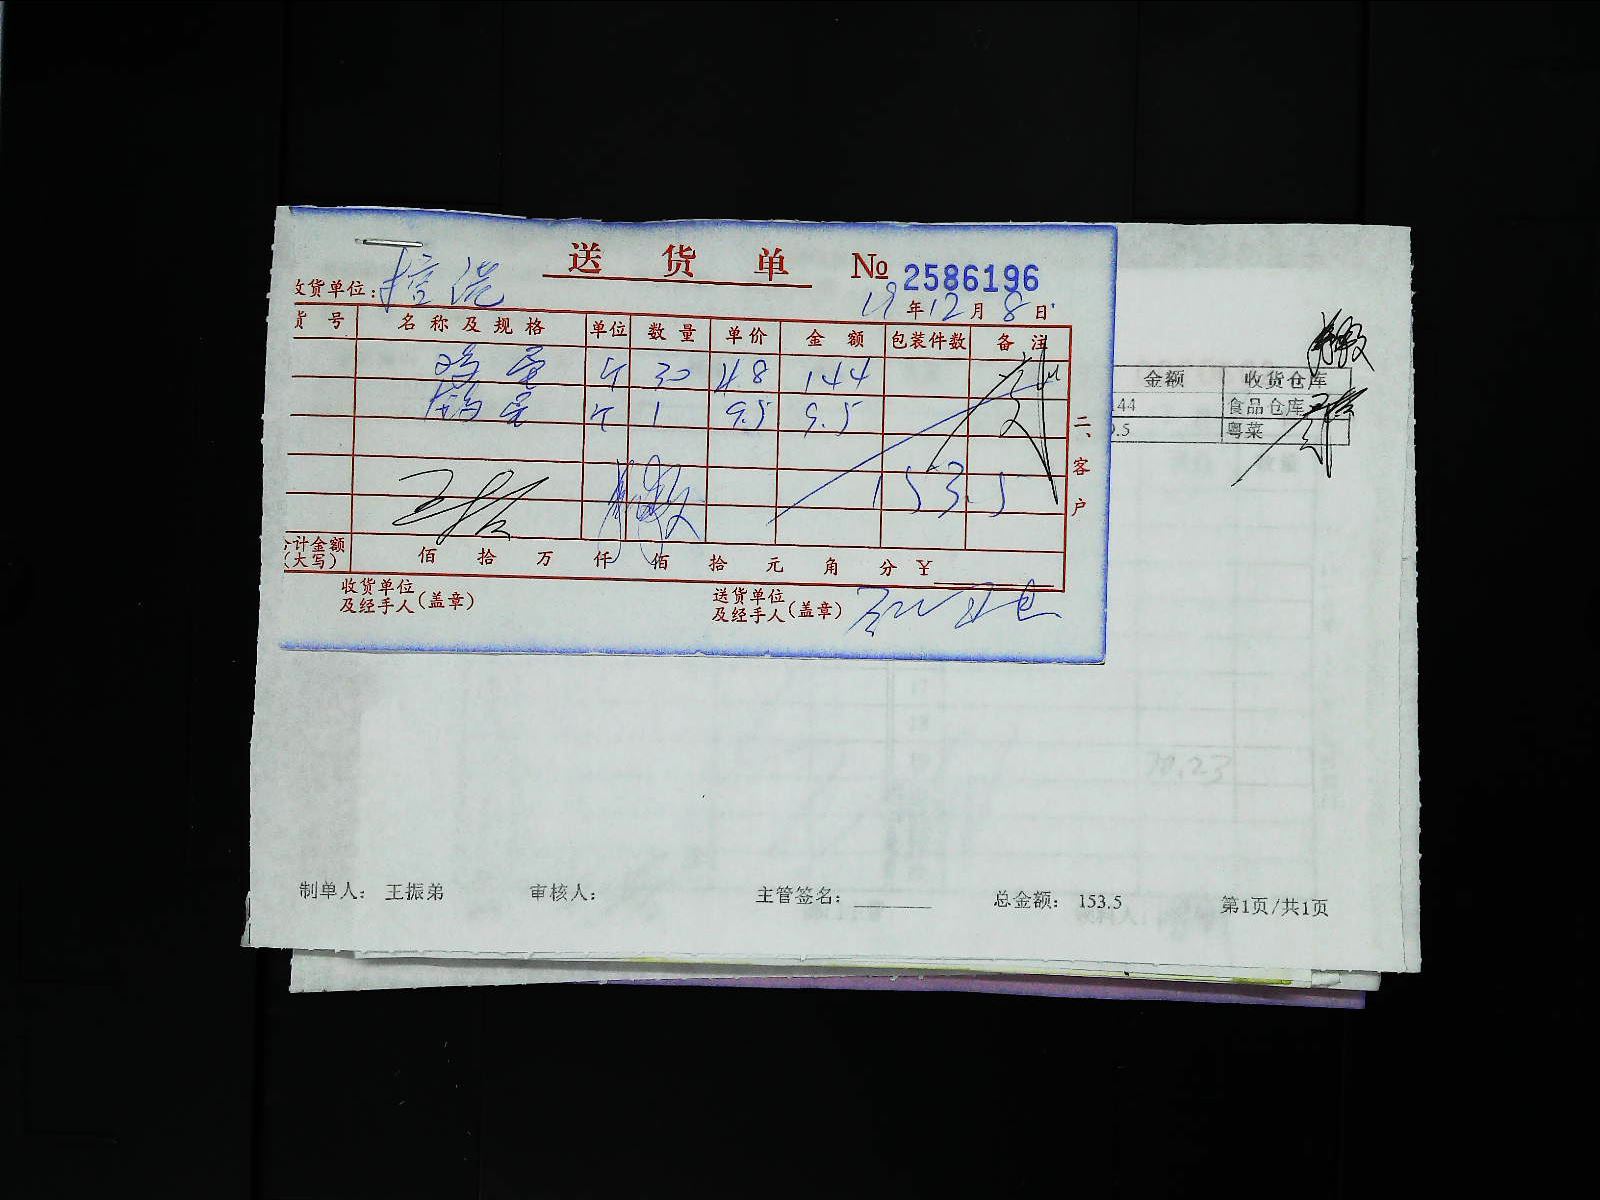 送货单 № 2586196
收货单位:
19年12月8日
货号 名称及规格 单位 数量 单价 金额 包装件数 备注
鸡蛋 斤 30 4.8 144
斤 1 9.5 9.5
153.5
二、客户
合计金额(大写) 佰 拾 万 仟 佰 拾 元 角 分 ¥
收货单位及经手人(盖章) 送货单位及经手人(盖章)
金额 收货仓库
44 食品仓库
9.5 粤菜
70.23
制单人: 王振弟 审核人: 主管签名: 总金额: 153.5 第1页/共1页